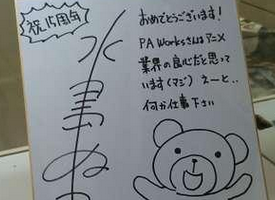 祝15周年
おめでとうございます!
PA Worksさんはアニメ
業界の良心だと思って
います(マジ) えーと..
何か仕事下さい
水島努